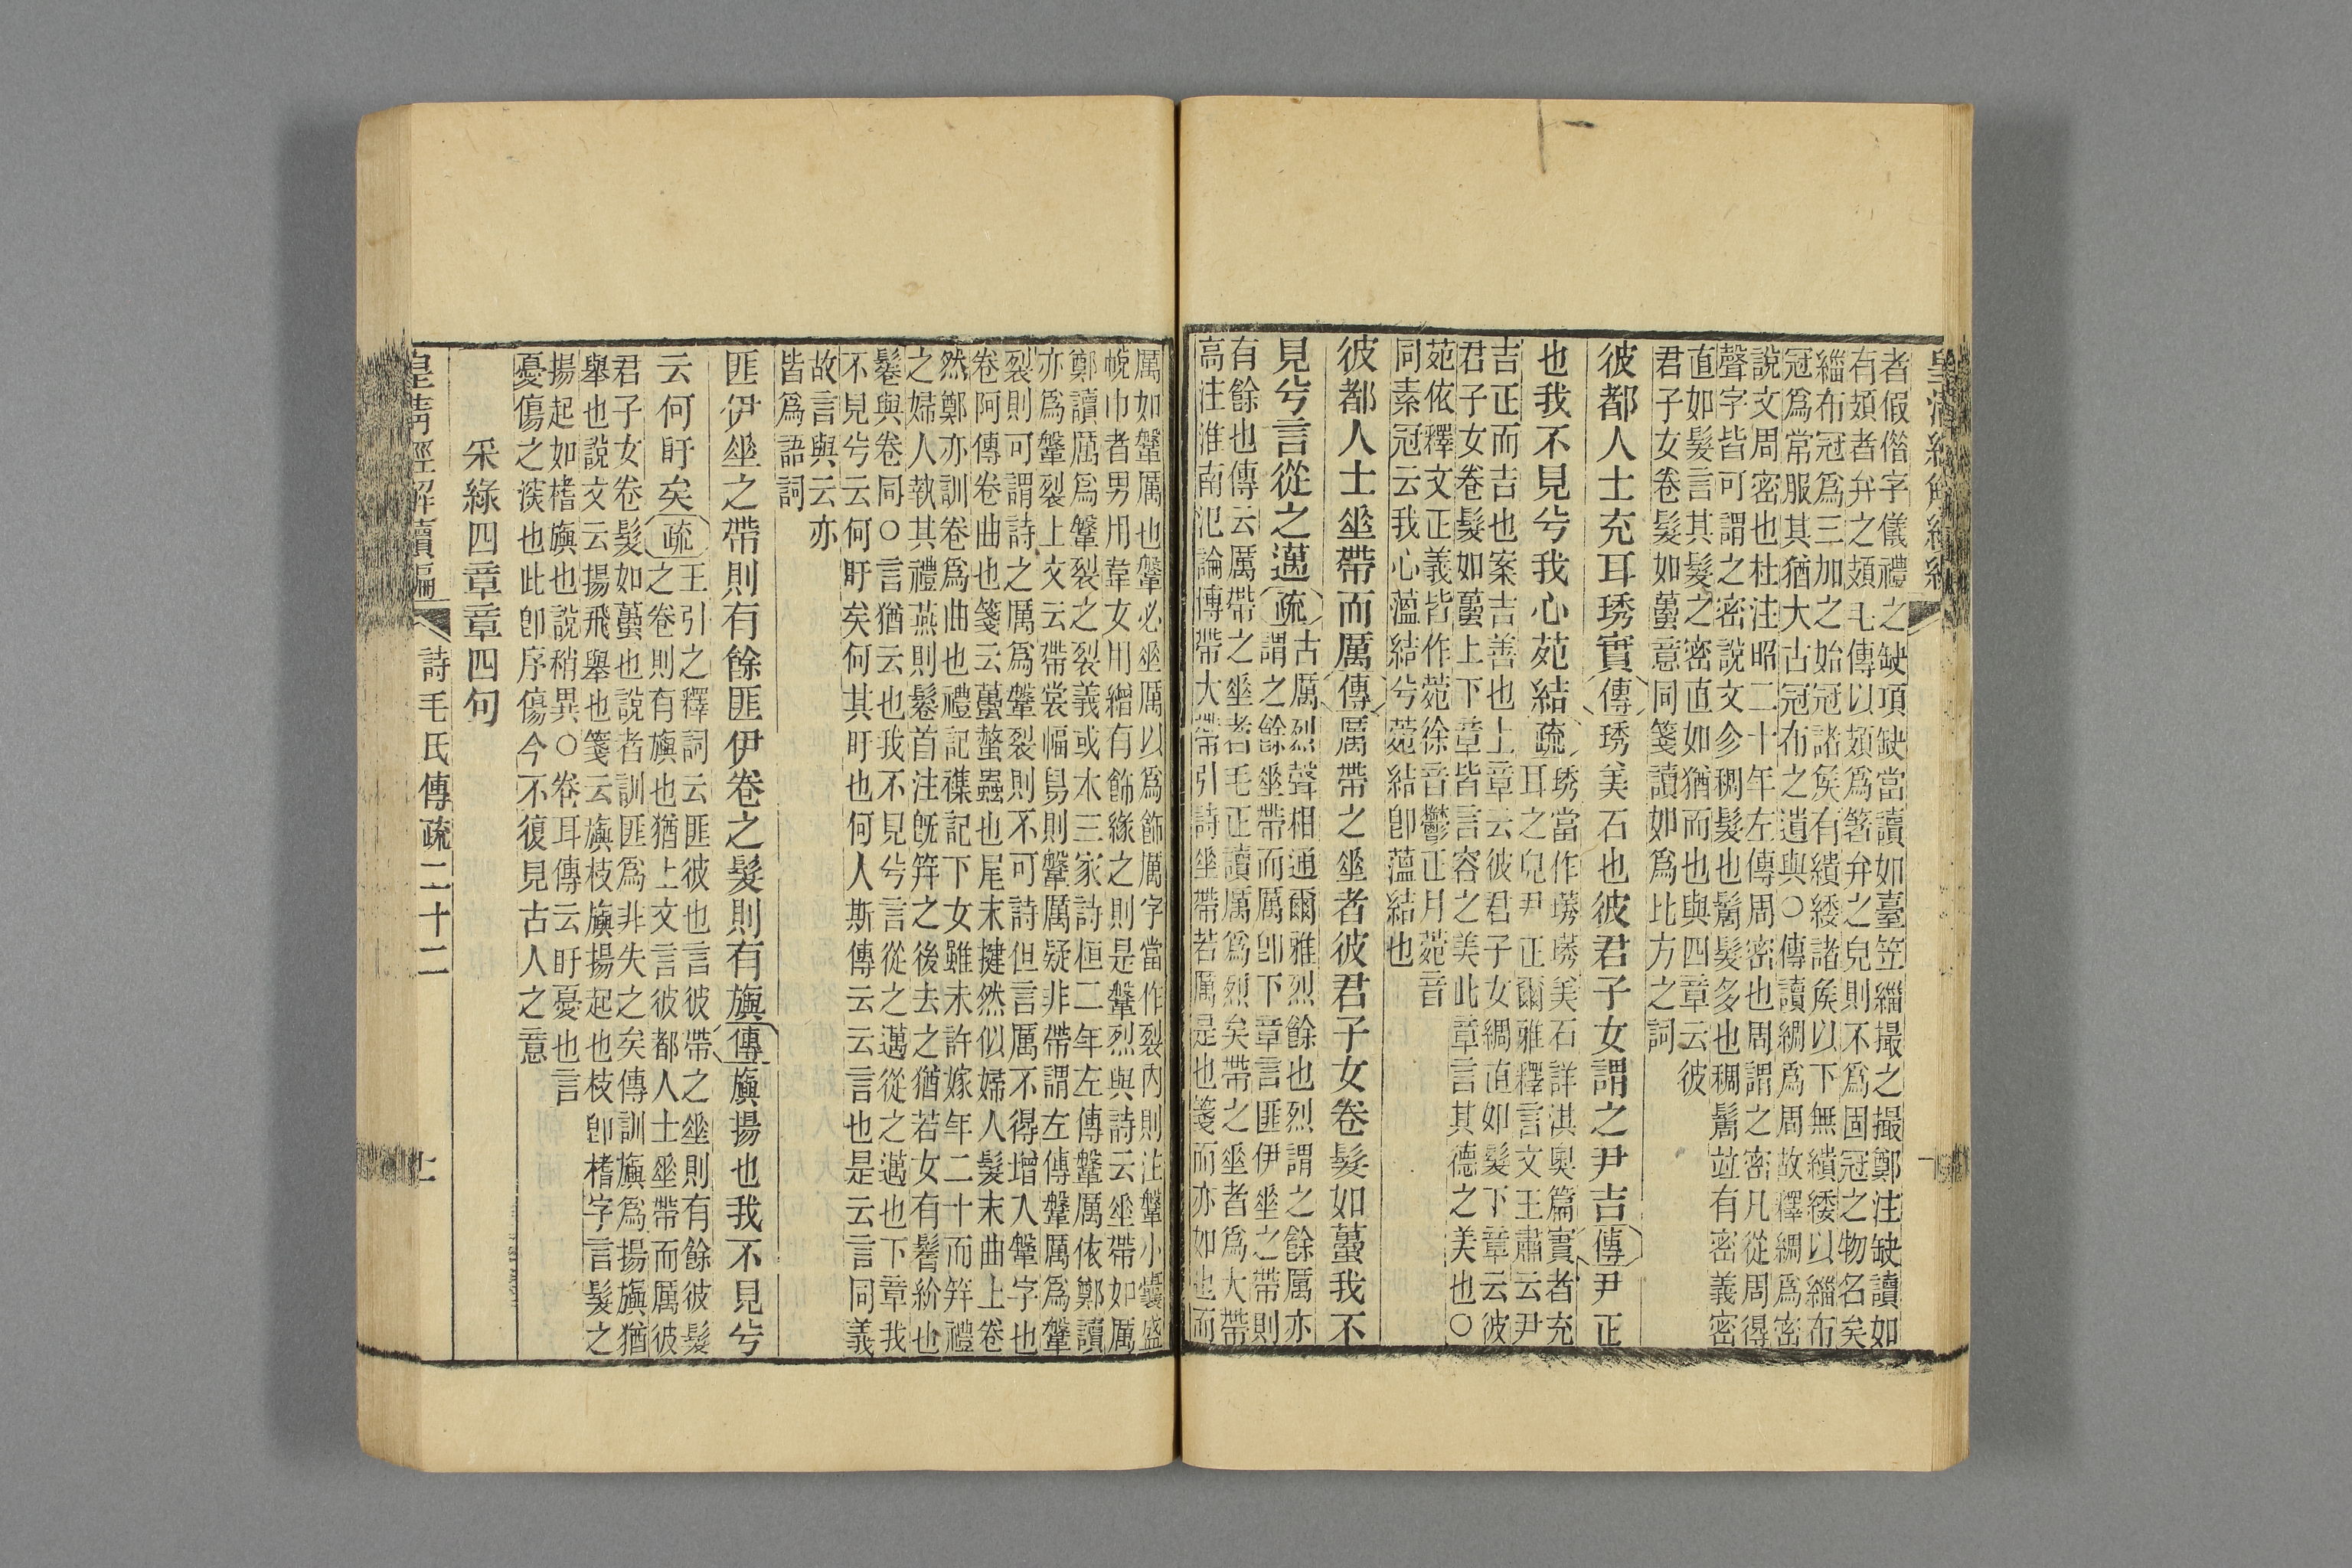 者假偺字儀禮之缺項缺當讀如臺笠緇撮之撮鄭注缺讀如
有頍者弁之頍毛傳以頍爲箬弁之皃則不爲固冠之物名矣
緇布冠爲三加之始冠諸矦有繢緌諸矦以下無繢緌以緇布
冠爲常服其猶大古冠布之遺與○傳讀綢爲周故釋綢爲密
說文周密也杜注昭二十年左傳周密也周謂之密凡從周得
聲字皆可謂之密說文㐱稠髮也鬗髮多也稠鬗竝有密義密
直如髮言其髮之密直如猶而也與四章云彼
君子女卷髮如蠆意同箋讀如爲比方之詞
彼都人士充耳琇實傳琇美石也彼君子女謂之尹吉傳尹正
也我不見兮我心苑結疏
琇當作璓璓美石詳淇奧篇實者充
耳之皃尹正爾雅釋言文王肅云尹
吉正而吉也案吉善也上章云彼君子女綢直如髮下章云彼
君子女卷髮如蠆上下章皆言容之美此章言其德之美也○
苑依釋文正義皆作菀徐音鬱正月菀音
同素冠云我心薀結兮菀結卽薀結也
彼都人士垂帶而厲傳厲帶之垂者彼君子女卷髮如蠆我不
見兮言從之邁疏
古厲烈聲相通爾雅烈餘也烈謂之餘厲亦
謂之餘垂帶而厲卽下章言匪伊垂之帶則
有餘也傳云厲帶之垂者毛正讀厲爲烈矣帶之垂者爲大帶
高注淮南氾論博帶大帶引詩垂帶若厲是也箋而亦如也而
厲如鞶厲也鞶必垂厲以爲飾厲字當作裂內則注鞶小囊盛
帨巾者男用韋女用繒有飾緣之則是鞶烈與詩云垂帶如厲
鄭讀厲爲鞶裂之裂義或本三家詩桓二年左傳鞶厲依鄭讀
亦爲鞶裂上文云帶裳幅舄則鞶厲疑非帶謂左傳鞶厲爲鞶
裂則可謂詩之厲爲鞶裂則不可詩但言厲不得增入鞶字也
卷阿傳卷曲也箋云蠆螫蟲也尾末揵然似婦人髮末曲上卷
然鄭亦訓卷爲曲也禮記襍記下女雖未許嫁年二十而筓禮
之婦人執其禮燕則鬈首注旣筓之後去之猶若女有鬌紒也
鬈與卷同○言猶云也我不見兮言從之邁從之邁也下章我
不見兮云何盱矣何其盱也何人斯傳云云言也是云言同義
故言與云亦
皆爲語詞
匪伊垂之帶則有餘匪伊卷之髮則有旟傳旟揚也我不見兮
云何盱矣疏
王引之釋詞云匪彼也言彼帶之垂則有餘彼髮
之卷則有旟也猶上文言彼都人士垂帶而厲彼
君子女卷髮如蠆也說者訓匪爲非失之矣傳訓旟爲揚旟猶
舉也說文云揚飛舉也箋云旟枝旟揚起也枝卽榰字言髮之
揚起如榰旟也說稍異○卷耳傳云盱憂也言
憂傷之深也此卽序傷今不復見古人之意
采綠四章章四句
皇清經解續編 詩毛氏傳疏二十二